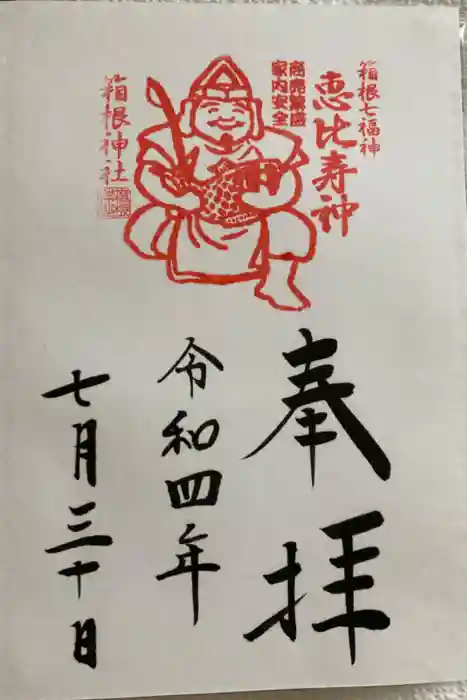 箱根七福神
恵比寿神
商売繁盛
家内安全
箱根神社
奉拝
令和四年
七月三十日